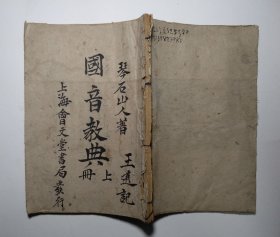 琴石山人著
王遺記
國音教典
上冊
上海會文堂書局發行